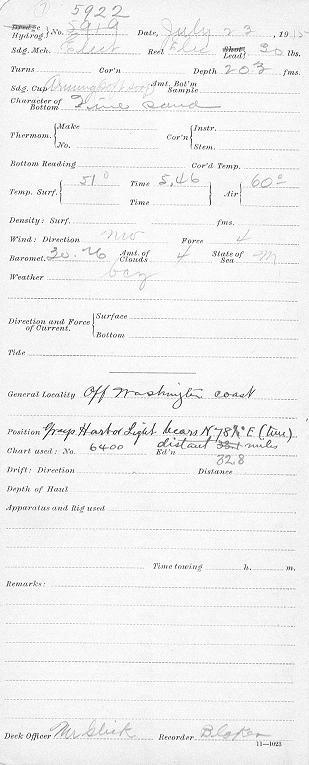 5922
Dredge Hydrog. } No. 5919 Date, July 23, 1915
Sdg. Mch. Elect Reel Elec Shot Lead } 30 lbs.
Turns Cor'n Depth 203 fms.
Sdg. Cup Amt. Bot'm Sample
Character of Bottom } Fine sand
Thermom. { Make No. Cor'n { Instr. Stem.
Bottom Reading Cor'd Temp.
Temp. Surf. { 51° Time 5,46 Air { 60°
Time
Density: Surf. fms.
Wind: Direction NW Force 4
Baromet. 30.76 Amt. of Clouds } 4 State of Sea } M
Weather bcz
Direction and Force of Current. { Surface
Bottom
Tide
General Locality Off Washington coast
Position Grays Harbor Light bears N 78¾° E (true)
distant 33.1 miles
Chart used: No. 6400 Ed'n 32.8
Drift: Direction Distance
Depth of Haul
Apparatus and Rig used
Time towing h. m.
Remarks:
Deck Officer Mr Glick Recorder
11—1023